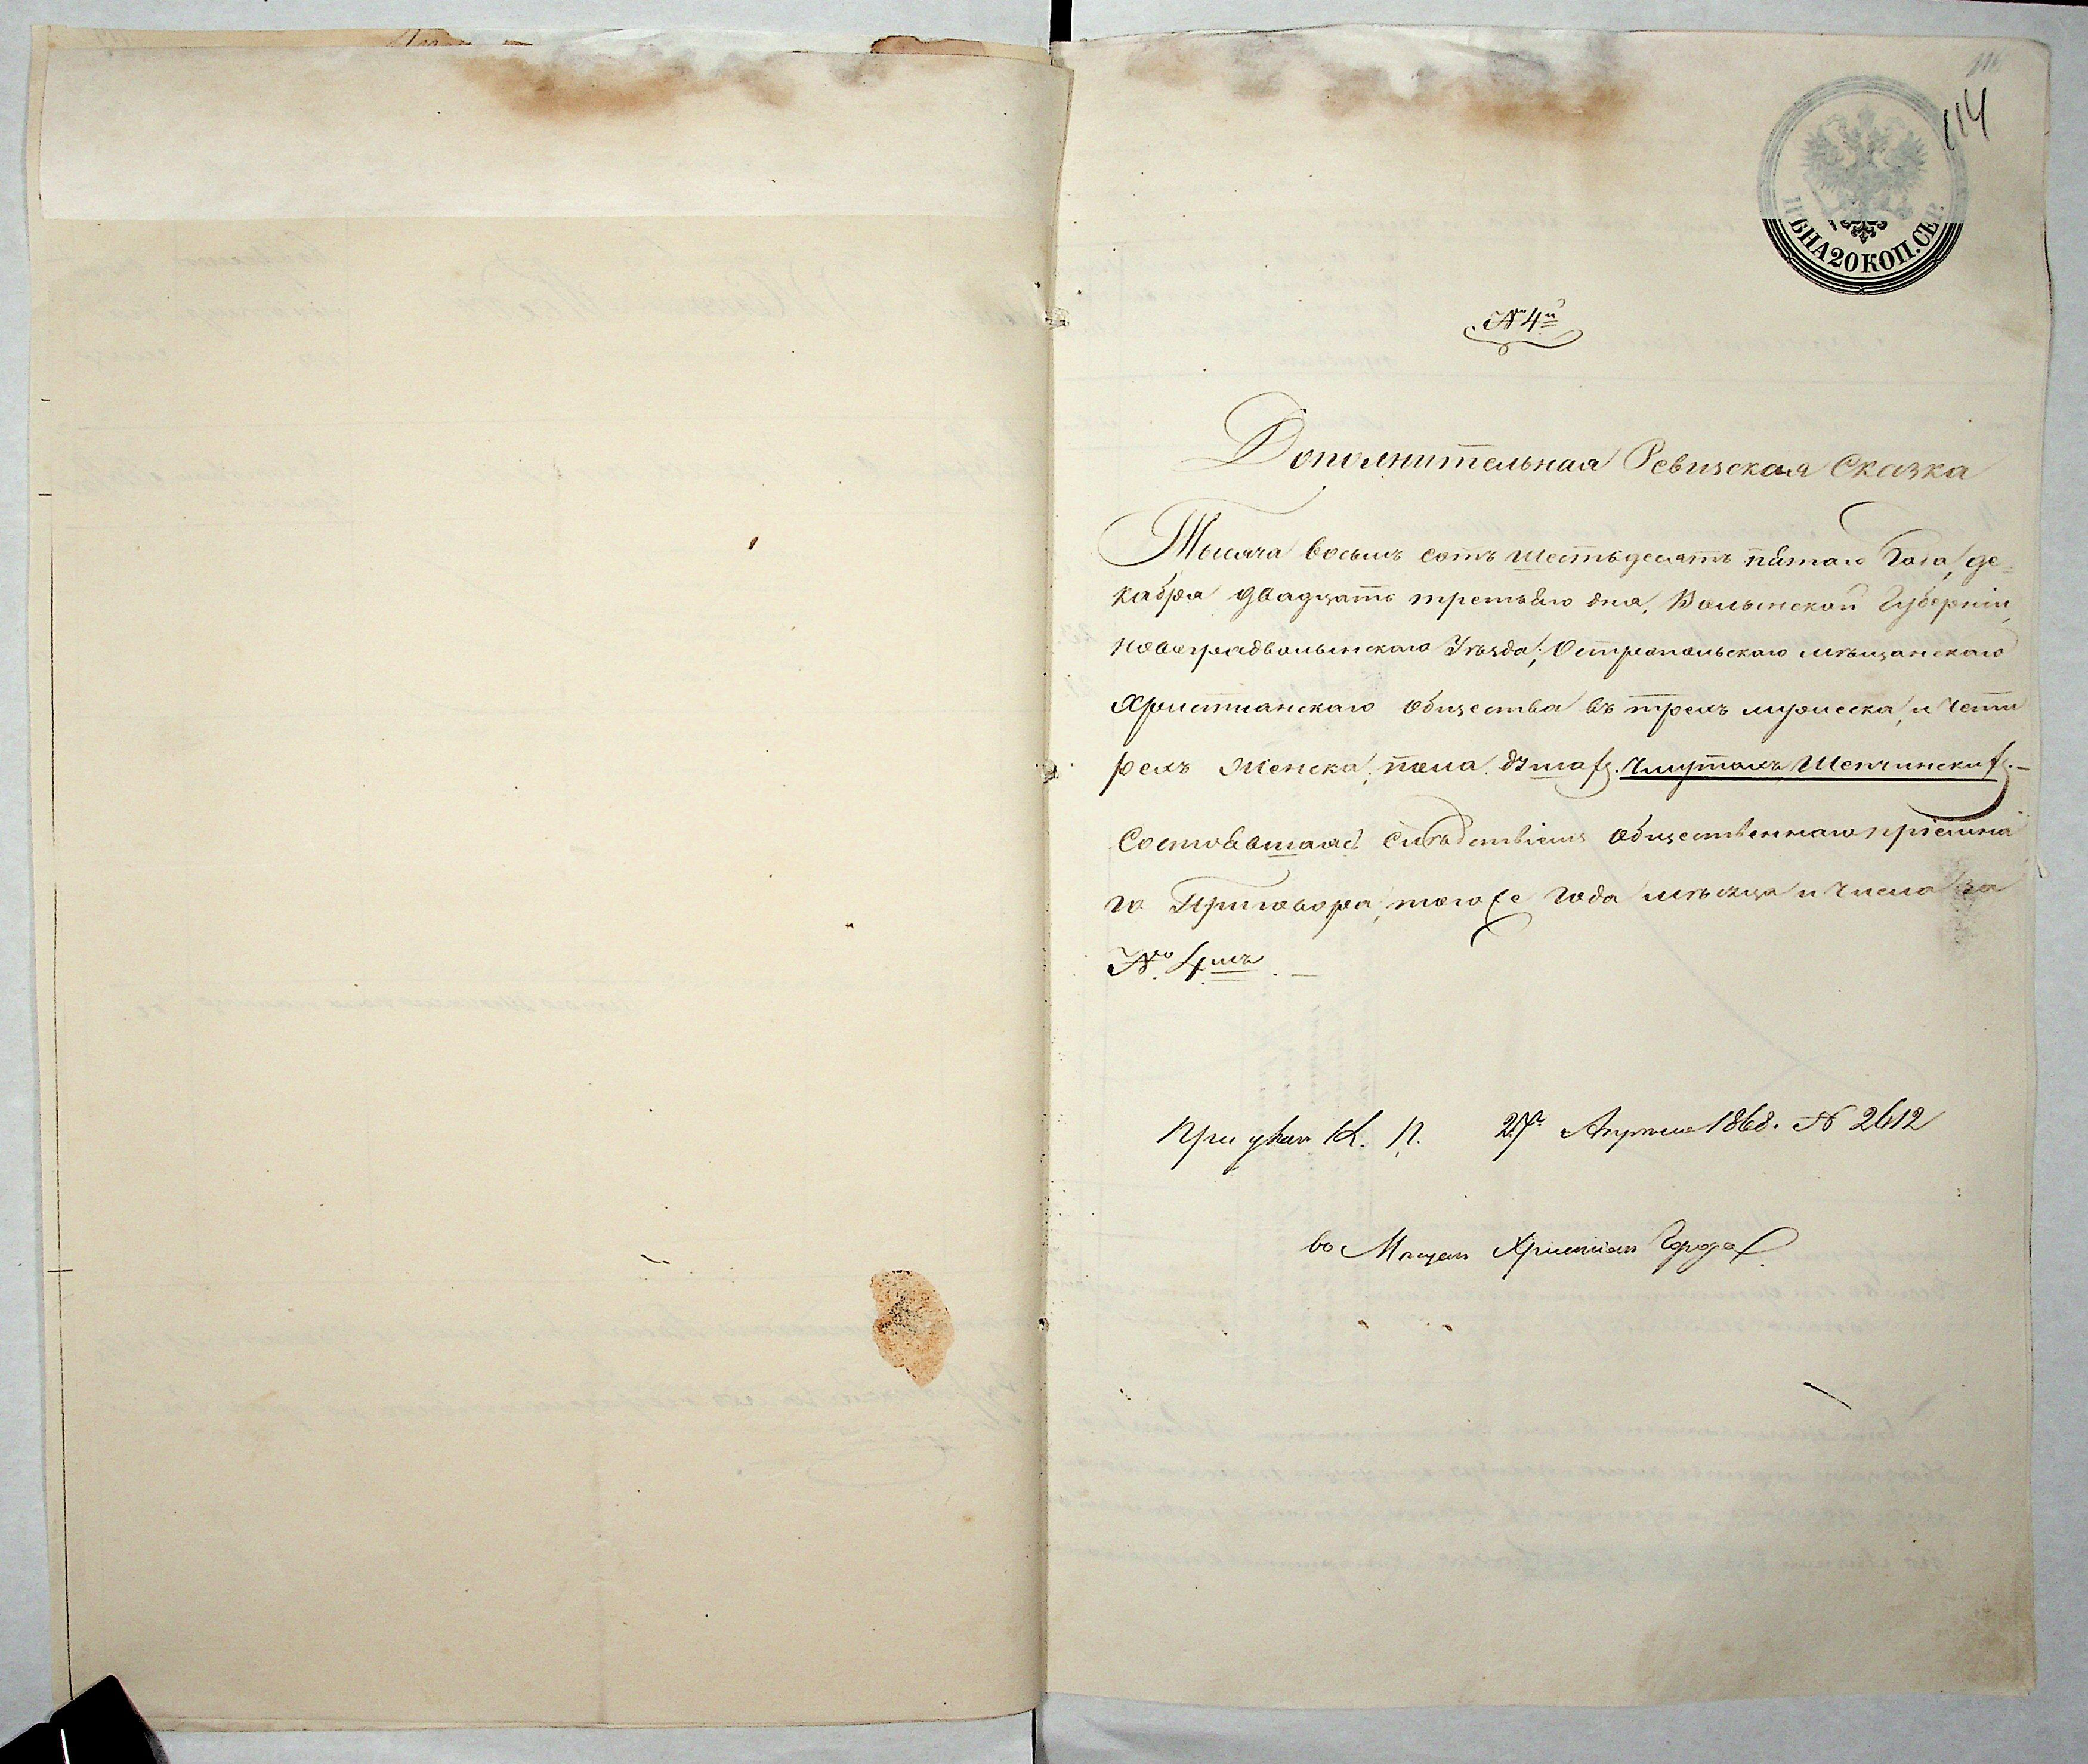 114
ЦѢНА 20 КОП. СЕР.
№ 4й
Дополнительная Ревизская Сказка
Тысяча восемь сотъ шестьдесятъ пятаго Года, де=
кабря двадцать третьяго дня, Волынской Губерніи,
Новоградволынскаго Уѣзда, Остропольскаго мѣщанскаго
Христианскаго общества въ трехъ мужеска, и чети
рехъ женска, пола душахъ Шепчинскихъ.—
Состоявшаяся слѣдствіемъ общественнаго пріемна
го Приговора, того же года мѣсяца и числа за
№ 4мъ. —
При указ К. П. 27го Апрѣля 1868. № 2612
во Мѣщан Христіан Города